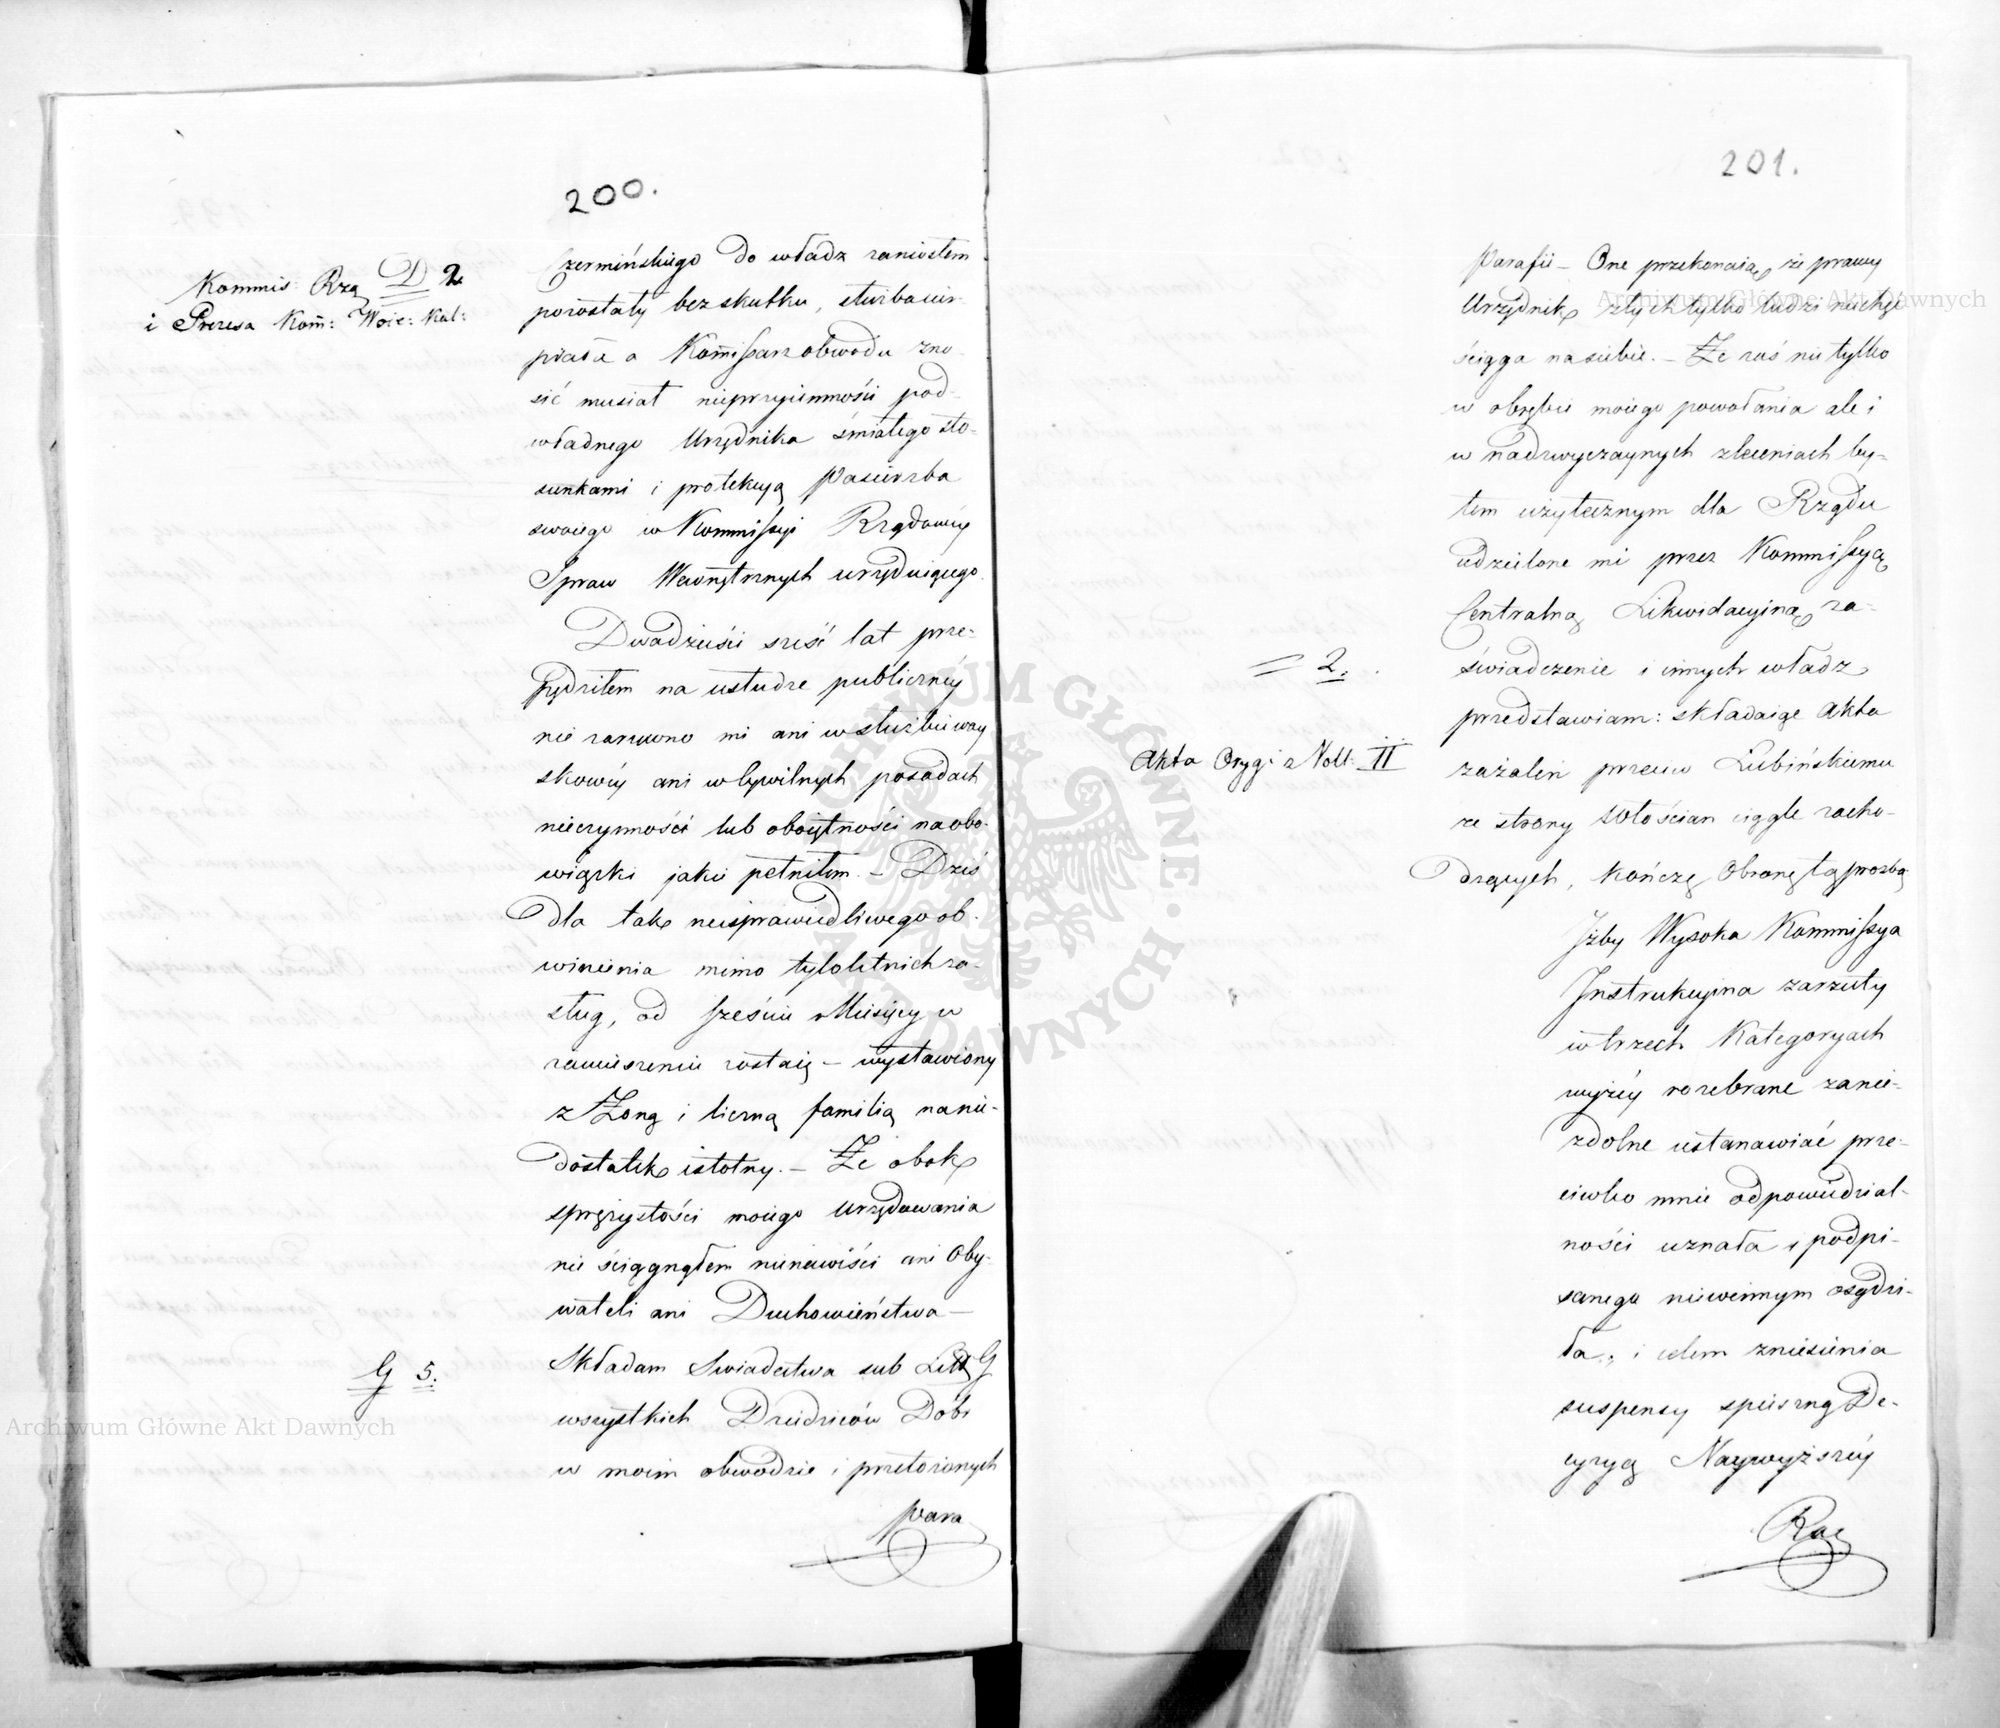 200.
Kommis Rzą D 2
i Prezesa Kom̃: Woie: Kal:
Czermińskiego do władz zaniosłem
pozostały bez skutku, służba cier-
piała a Kom̃issarz obwodu zno-
sić musiał nieprzyiemności pod-
władnego Urzędnika śmiałego sto-
sunkami i protekcyą Pasierzba
swoiego w Kommissyi Rządowéy
Spraw Wewnętrznych urzęduiącego.
Dwadzieścia sześć lat prze-
pędziłem na usłudze publicznéy
nie zarzucono mi ani w służbie woy
skowéy ani w Cywilnych posadach
nieczynności lub oboiętności na obo-
wiązki jakie pełniłem – Dziś
dla tak niesprawiedliwego ob-
winienia mimo tyloletnich za-
sług, od sześciu Miesięcy w
zawieszeniu zostaię – wystawiony
z Żoną i liczną familią na nie-
dostatek istotny. – Że obok
sprężystości moiego Urzędowania
nie ściągnąłem nienawiści ani Oby-
wateli ani Duchowieństwa –
G 5.
Składam Swiadectwa sub Litt G
wszystkich Dziedziców Dóbr
w moim obwodzie i przełożonych
Para
201.
Parafii – One przekonaią, że prawy
Urzędnik złych tylko ludzi niechęć
ściąga na siebie. – Że zaś nie tylko
w obrębie moiego powołania ale i
w nadzwyczaynych zleceniach by-
łem użytecznym dla Rządu
udzielone mi przez Kommissyą
Centralną Likwidacyiną za-
= 2.
świadczenie i innych władz
przedstawiam: składaiąc Akta
Akta Orygi z Volł: II
zażaleń przeciw Lubińskiemu
ze strony Włościan ciągle zacho-
dzących, kończę Obronę tą prozbą
Iżby Wysoka Kommissya
Instrukcyina zarzuty
w trzech Kategoryach
wyżéy rozebrane za nie-
zdolne ustanawiać prze-
ciwko mnie odpowiedzial-
ności uznała i podpi-
sanego niewinnym osądzi-
ła, i celem zniesienia
suspensy spieszną De-
cyzyą Naywyższéy
Rae